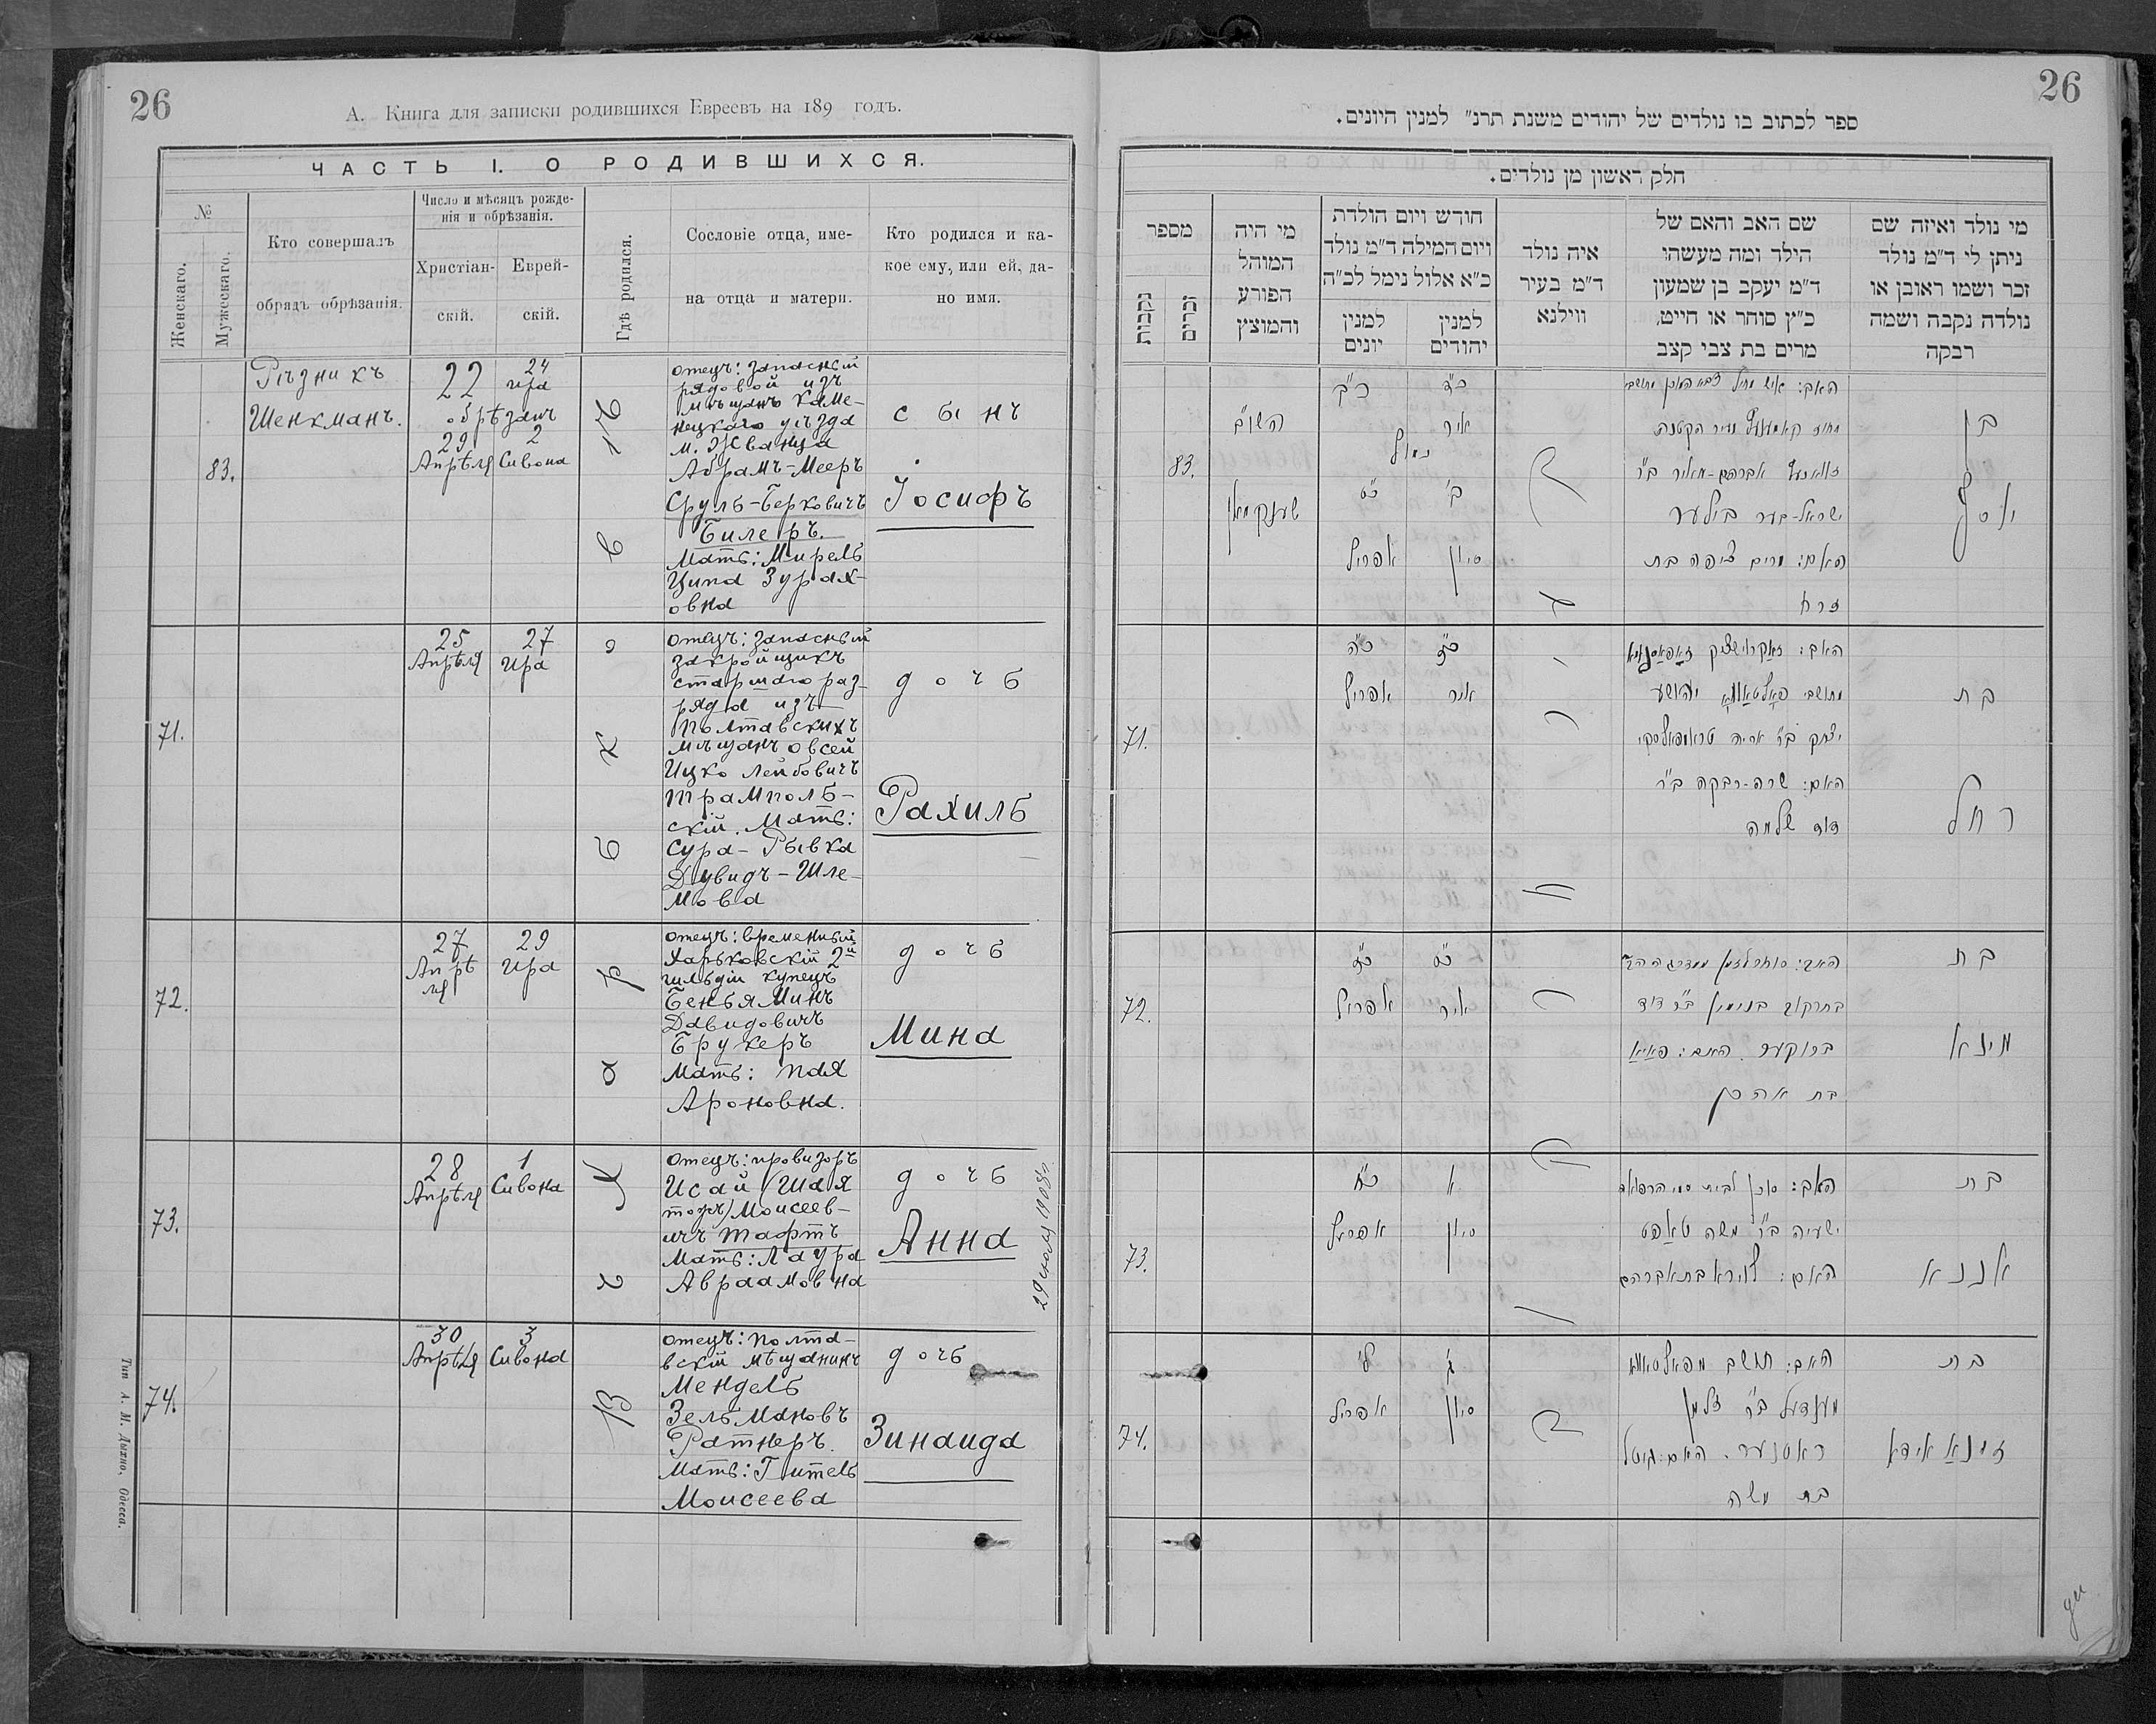 26
А. Книга для записки родившихся Евреевъ на 189 годъ.
ЧАСТЬ I. О РОДИВШИХСЯ.
№
Женскаго.
Мужескаго.
Кто совершалъ
обрядъ обрѣзанія.
Число и мѣсяцъ рожде-
нія и обрѣзанія.
Христіан-
скій.
Еврей-
скій.
Гдѣ родился.
Сословіе отца, име-
на отца и матери.
Кто родился и ка-
кое ему, или ей, да-
но имя.
83.
Рѣзникъ
Шенкманъ.
22
24
ира
обрѣзанъ
29
2
Апрѣля
Сивона
отецъ: запасный
рядовой изъ
мѣщанъ Каме-
нецкаго уѣзда
м. Жванца
Абрамъ-Мееръ
Сруль-Берковичъ
Билеръ.
Мать: Мирель
Ципа Зурах-
овна
сынъ
Іосифъ
71.
25
Апрѣля
27
Ира
отецъ: запасный
закройщикъ
старшаго раз-
ряда изъ
Полтавскихъ
мѣщанъ Овсей
Ицко Лейбовичъ
Трамполь-
скій. Мать:
Сура-Рывка
Дувидъ-Шле-
мова
дочь
Рахиль
72.
27
Апрѣ
ля
29
Ира
отецъ: временный
Харьковскій 2й
гильдіи купецъ
Беньяминъ
Давидовичъ
Брукеръ
Мать: Пая
Ароновна.
дочь
Мина
73.
28
Апрѣля
1
Сивона
отецъ: провизоръ
Исай (Шая
тожъ) Моисеев-
ичъ Тафтъ
Мать: Лаура
Авраамовна
дочь
Анна
74.
30
Апрѣля
3
Сивона
отецъ: Полта-
вскій мѣщанинъ
Мендель
Зельмановъ
Ратнеръ.
Мать: Гитель
Моисеева
дочь
Зинаида
Тип. А. М. Дыхно, Одесса.
26
ספר לכתוב בו נולדים של יהודים משנת תרנ״ למנין היונים.
חלק ראשון מן נולדים.
מספר
נקבות
זכרים
מי היה
המוהל
הפורע
והמוצץ
חודש ויום הולדת
ויום המילה ד״מ נולד
כ״א אלול נימל לכ״ה
למנין
יונים
למנין
יהודים
איה נולד
ד״מ בעיר
ווילנא
שם האב והאם של
הילד ומה מעשהו
ד״מ יעקב בן שמעון
כ״ץ סוחר או חייט,
מרים בת צבי קצב
מי נולד ואיזה שם
ניתן לי ד״מ נולד
זכר ושמו ראובן או
נולדה נקבה ושמה
רבקה
83.
השו״ב
שענקמאן
כ״ב
כ״ד
אייר
נמול
כ״ט
ב׳
אפריל
סיון
אברהם-מאיר ב״ר
ישראל-בער בילער
האם: מרים ציפה בת
זרח
בן
יוסף
71.
כ״ה
כ״ז
אפריל
אייר
יהושע
יצחק ב״ר אריה
האם: שרה-רבקה ב״ר
דוד שלמה
בת
רחל
72.
כ״ז
כ״ט
אפריל
אייר
בנימין ב״ר דוד
ברוקער. האם: פאיא
בת אהרן
בת
מינא
73.
כ״ח
א
אפריל
סיון
ישעיה ב״ר משה טאפט
האם: לוירא בת אברהם
בת
אננא
74.
ל׳
ג׳
אפריל
סיון
האב: תושב מפאלטאווא
מענדעל ב״ר זלמן
ראטנער. האם: גיטל
בת משה
בת
זינאאידא